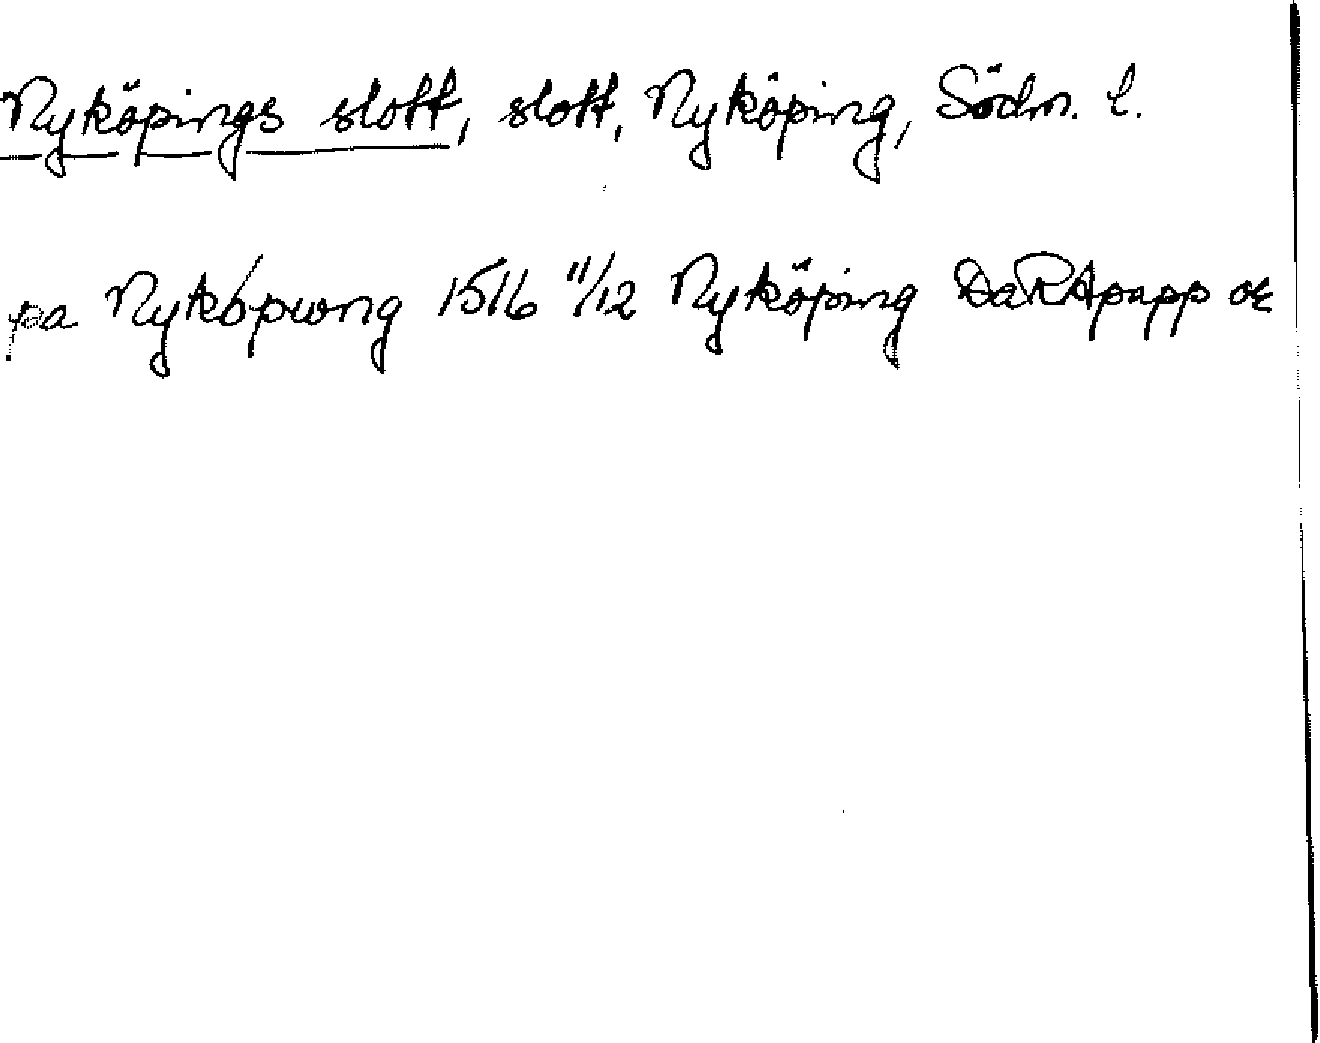 Nyköpings slott, slott, Nyköping, Södm. l.
pa Nykøpung 1516 11/12 Nyköping DaRApapp or